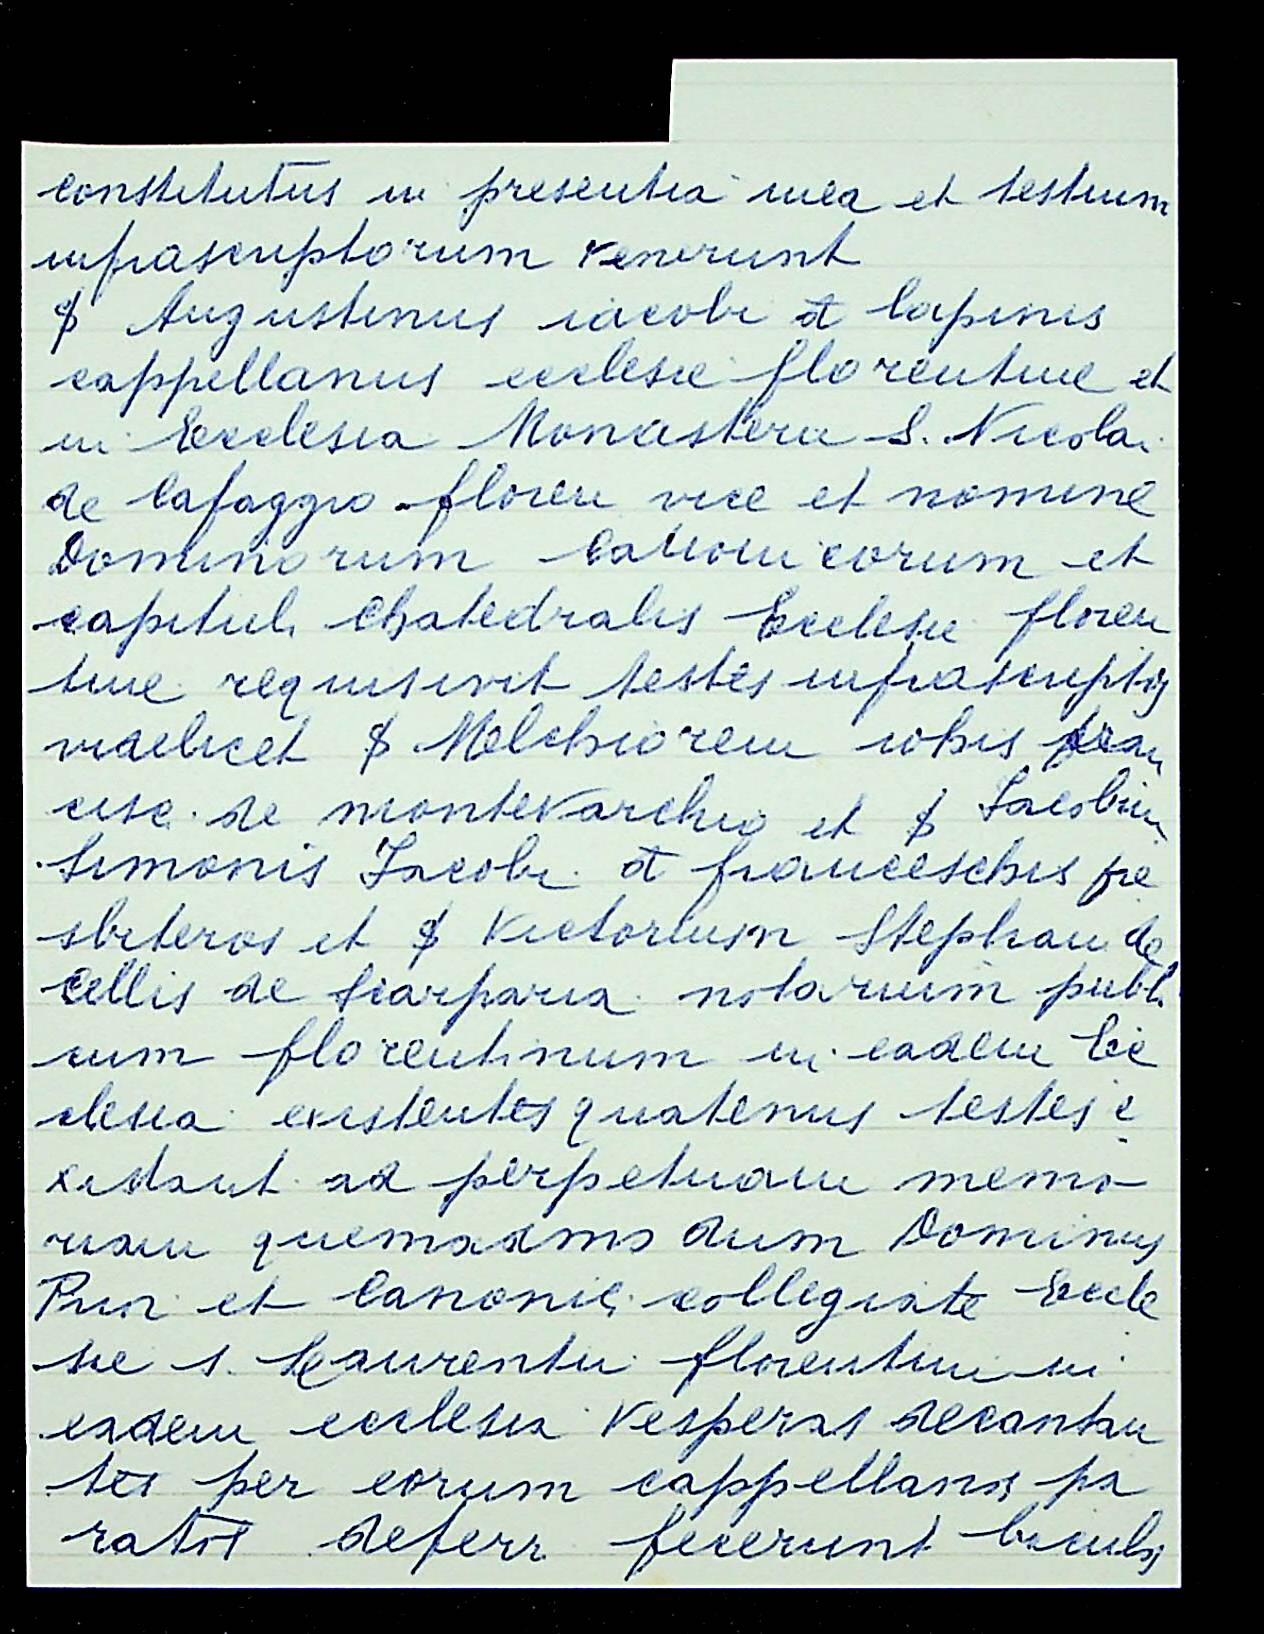 constitutus in presentia mea et testium
infrascriptorum venerunt
$ Augustinus iacobi đ lapinis
cappellanus ecclesie florentine et
in Ecclesia Monasterii S. Nicolai
de Cafaggio floren vice et nomine
Dominorum Canonicorum et
capituli Chatedralis Ecclesie floren
tine requisivit testes infrascriptos
videlicet $ Melchiorem iohis fran
cisc. de montevarchio et $ Jacobum
Simonis Jacobi đ franceschis pre
sbiteros et $ Victorium Stephani de
Cellis de Scarparia notarium publi
cum florentinum in eadem Ecc
clesia existentes quatenus testes e
xistant ad perpetuam memo
riam quemadmodum Dominus
Prior et Canonici collegiate Eccle
sie s. Laurentii florentini in
eadem ecclesia Vesperas decantan
tes per eorum cappellanos pa
ratos deferri fecerunt baculos